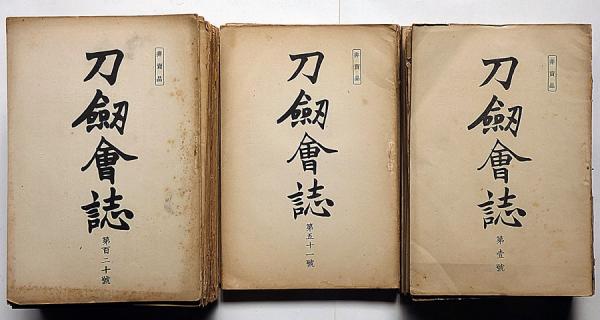 非賣品
刀劔會誌
第百二十號
非賣品
刀劔會誌
第五十一號
非賣品
刀劔會誌
第壹號